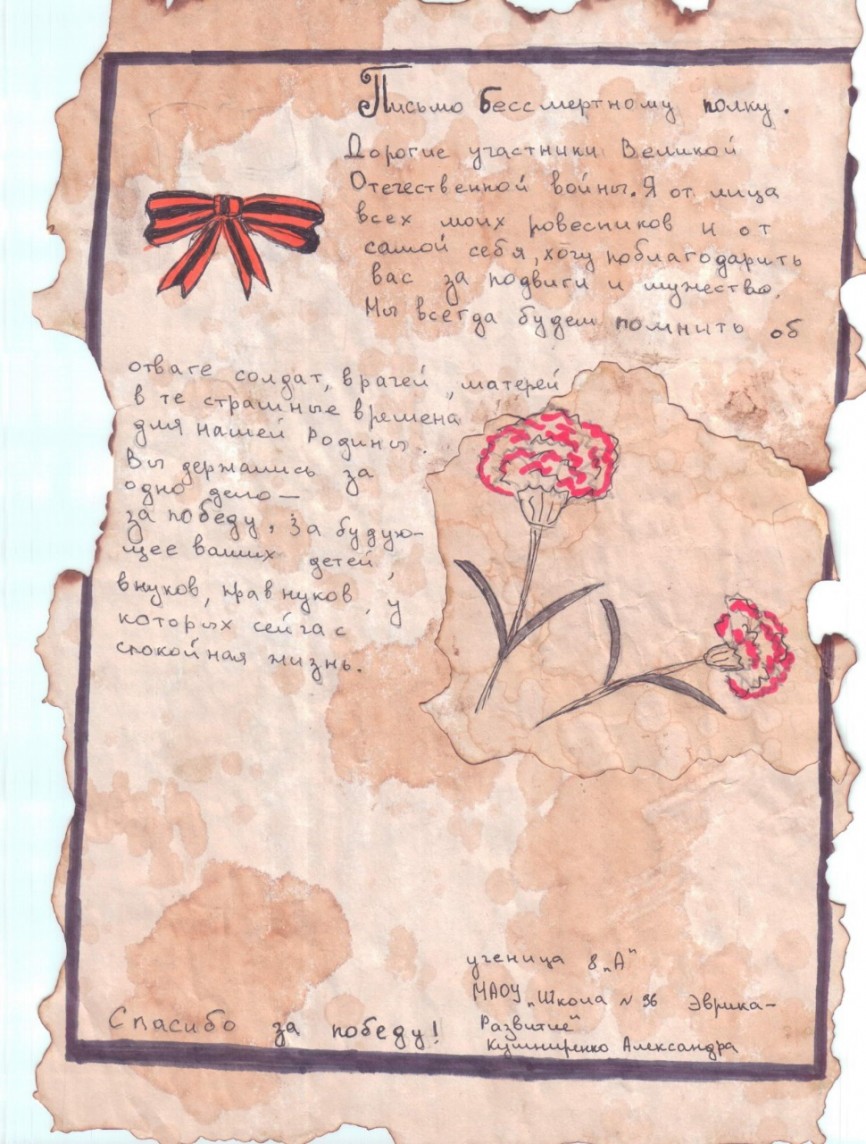 Письмо Бессмертному полку.
Дорогие участники Великой
Отечественной войны. Я от лица
всех моих ровесников и от
самой себя, хочу поблагодарить
вас за подвиги и мужество.
Мы всегда будем помнить об
отваге солдат, врачей, матерей
в те страшные времена
для нашей Родины.
Вы держались за
одно дело —
за победу, за будую-
щее ваших детей,
внуков, правнуков, у
которых сейчас
спокойная жизнь.
ученица 8 „А"
МАОУ „Школа № 96 Эврика-
Развитие"
Кушниренко Александра
Спасибо за победу!